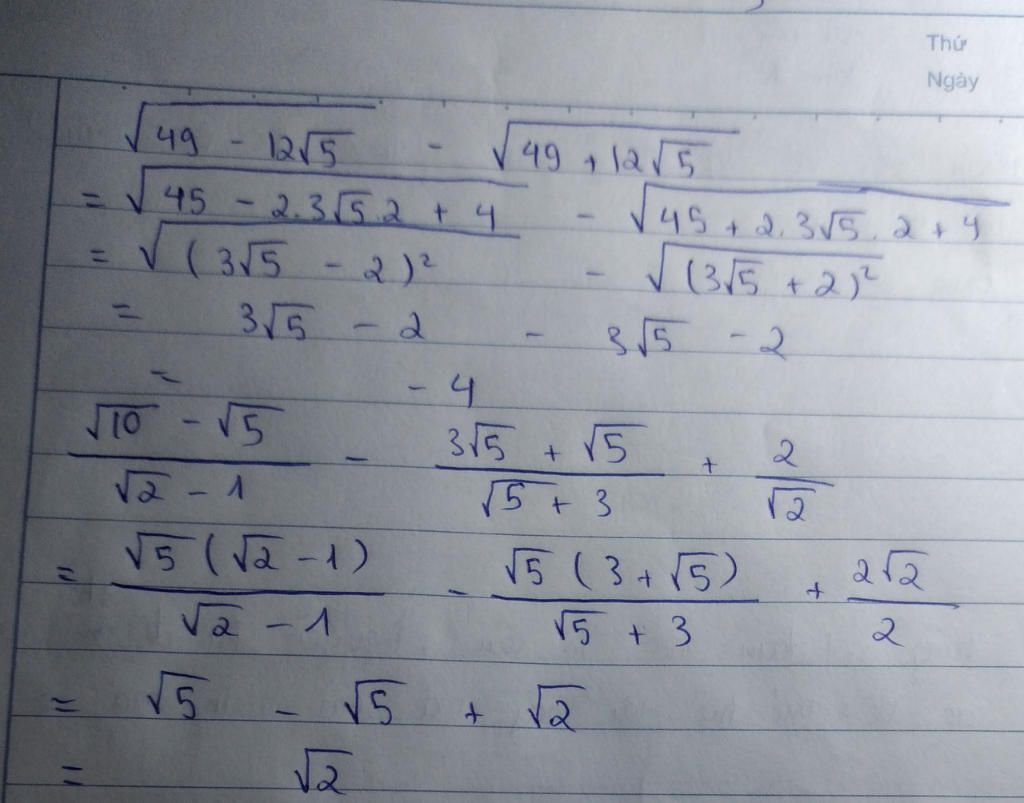 Thứ
Ngày
√(49 - 12√5) - √(49 + 12√5)
= √(45 - 2.3√5.2 + 4) - √(45 + 2.3√5.2 + 4)
= √((3√5 - 2)²) - √((3√5 + 2)²)
= 3√5 - 2 - 3√5 - 2
= - 4
(√10 - √5)/(√2 - 1) - (3√5 + √5)/(√5 + 3) + 2/√2
= √5(√2 - 1)/(√2 - 1) - √5(3 + √5)/(√5 + 3) + 2√2/2
= √5 - √5 + √2
= √2